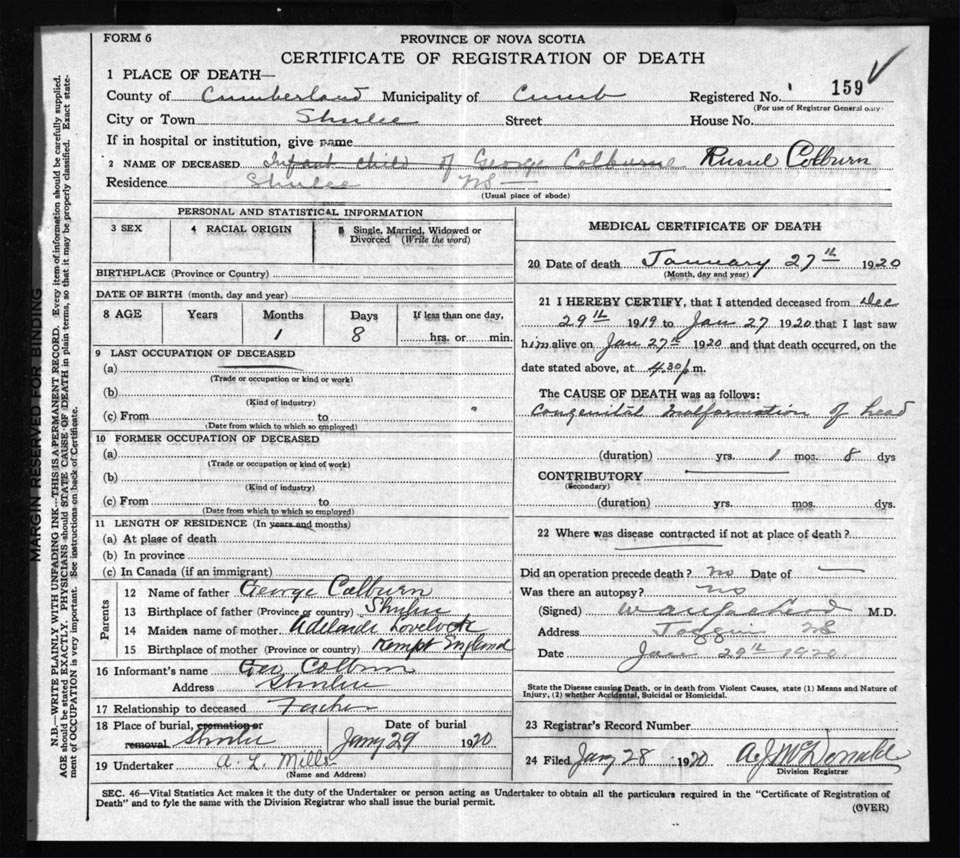 FORM 6
PROVINCE OF NOVA SCOTIA
CERTIFICATE OF REGISTRATION OF DEATH
1 PLACE OF DEATH—
County of Cumberland Municipality of Cumb Registered No. 159
(For use of Registrar General only)
City or Town Shulee Street House No.
If in hospital or institution, give name
2 NAME OF DECEASED Infant child of George Colburne Russel Colburn
Residence Shulee NS
(Usual place of abode)
PERSONAL AND STATISTICAL INFORMATION
3 SEX 4 RACIAL ORIGIN 5 Single, Married, Widowed or Divorced (Write the word)
BIRTHPLACE (Province or Country)
DATE OF BIRTH (month, day and year)
8 AGE Years Months Days If less than one day,
1 8 hrs. or min.
9 LAST OCCUPATION OF DECEASED
(a)
(Trade or occupation or kind or work)
(b)
(Kind of industry)
(c) From to
(Date from which to which so employed)
10 FORMER OCCUPATION OF DECEASED
(a)
(Trade or occupation or kind of work)
(b)
(Kind of industry)
(c) From to
(Date from which to which so employed)
11 LENGTH OF RESIDENCE (In years and months)
(a) At place of death
(b) In province
(c) In Canada (if an immigrant)
Parents
12 Name of father George Colburn
13 Birthplace of father (Province or country) Shulee
14 Maiden name of mother Adelaide Lovelock
15 Birthplace of mother (Province or country) Kempt England
16 Informant's name Geo Colburn
Address Shulee
17 Relationship to deceased Father
18 Place of burial, cremation or removal Shulee Date of burial Jany 29 1920
19 Undertaker A. L. Mills
(Name and Address)
MEDICAL CERTIFICATE OF DEATH
20 Date of death January 27th 1920
(Month, day and year)
21 I HEREBY CERTIFY, that I attended deceased from Dec
29th 1919 to Jan 27 1920 that I last saw
him alive on Jan 27th 1920 and that death occurred, on the
date stated above, at 4.30 p.m.
The CAUSE OF DEATH was as follows:
Congenital malformation of head
(duration) yrs. 1 mos. 8 dys
CONTRIBUTORY
(Secondary)
(duration) yrs. mos. dys.
22 Where was disease contracted if not at place of death?
Did an operation precede death? no Date of —
Was there an autopsy? no
(Signed) M.D.
Address Joggins NS
Date Jan 29th 1920
State the Disease causing Death, or in death from Violent Causes, state (1) Means and Nature of
Injury, (2) whether Accidental, Suicidal or Homicidal.
23 Registrar's Record Number
24 Filed Jany 28 1920 A J McDonald
Division Registrar
SEC. 46—Vital Statistics Act makes it the duty of the Undertaker or person acting as Undertaker to obtain all the particulars required in the "Certificate of Registration of
Death" and to fyle the same with the Division Registrar who shall issue the burial permit.
(OVER)
MARGIN RESERVED FOR BINDING
N.B.—WRITE PLAINLY WITH UNFADING INK—THIS IS A PERMANENT RECORD. Every item of information should be carefully supplied.
AGE should be stated EXACTLY. PHYSICIANS should STATE CAUSE OF DEATH in plain terms, so that it may be properly classified. Exact state-
ment of OCCUPATION is very important. See instructions on back of Certificate.